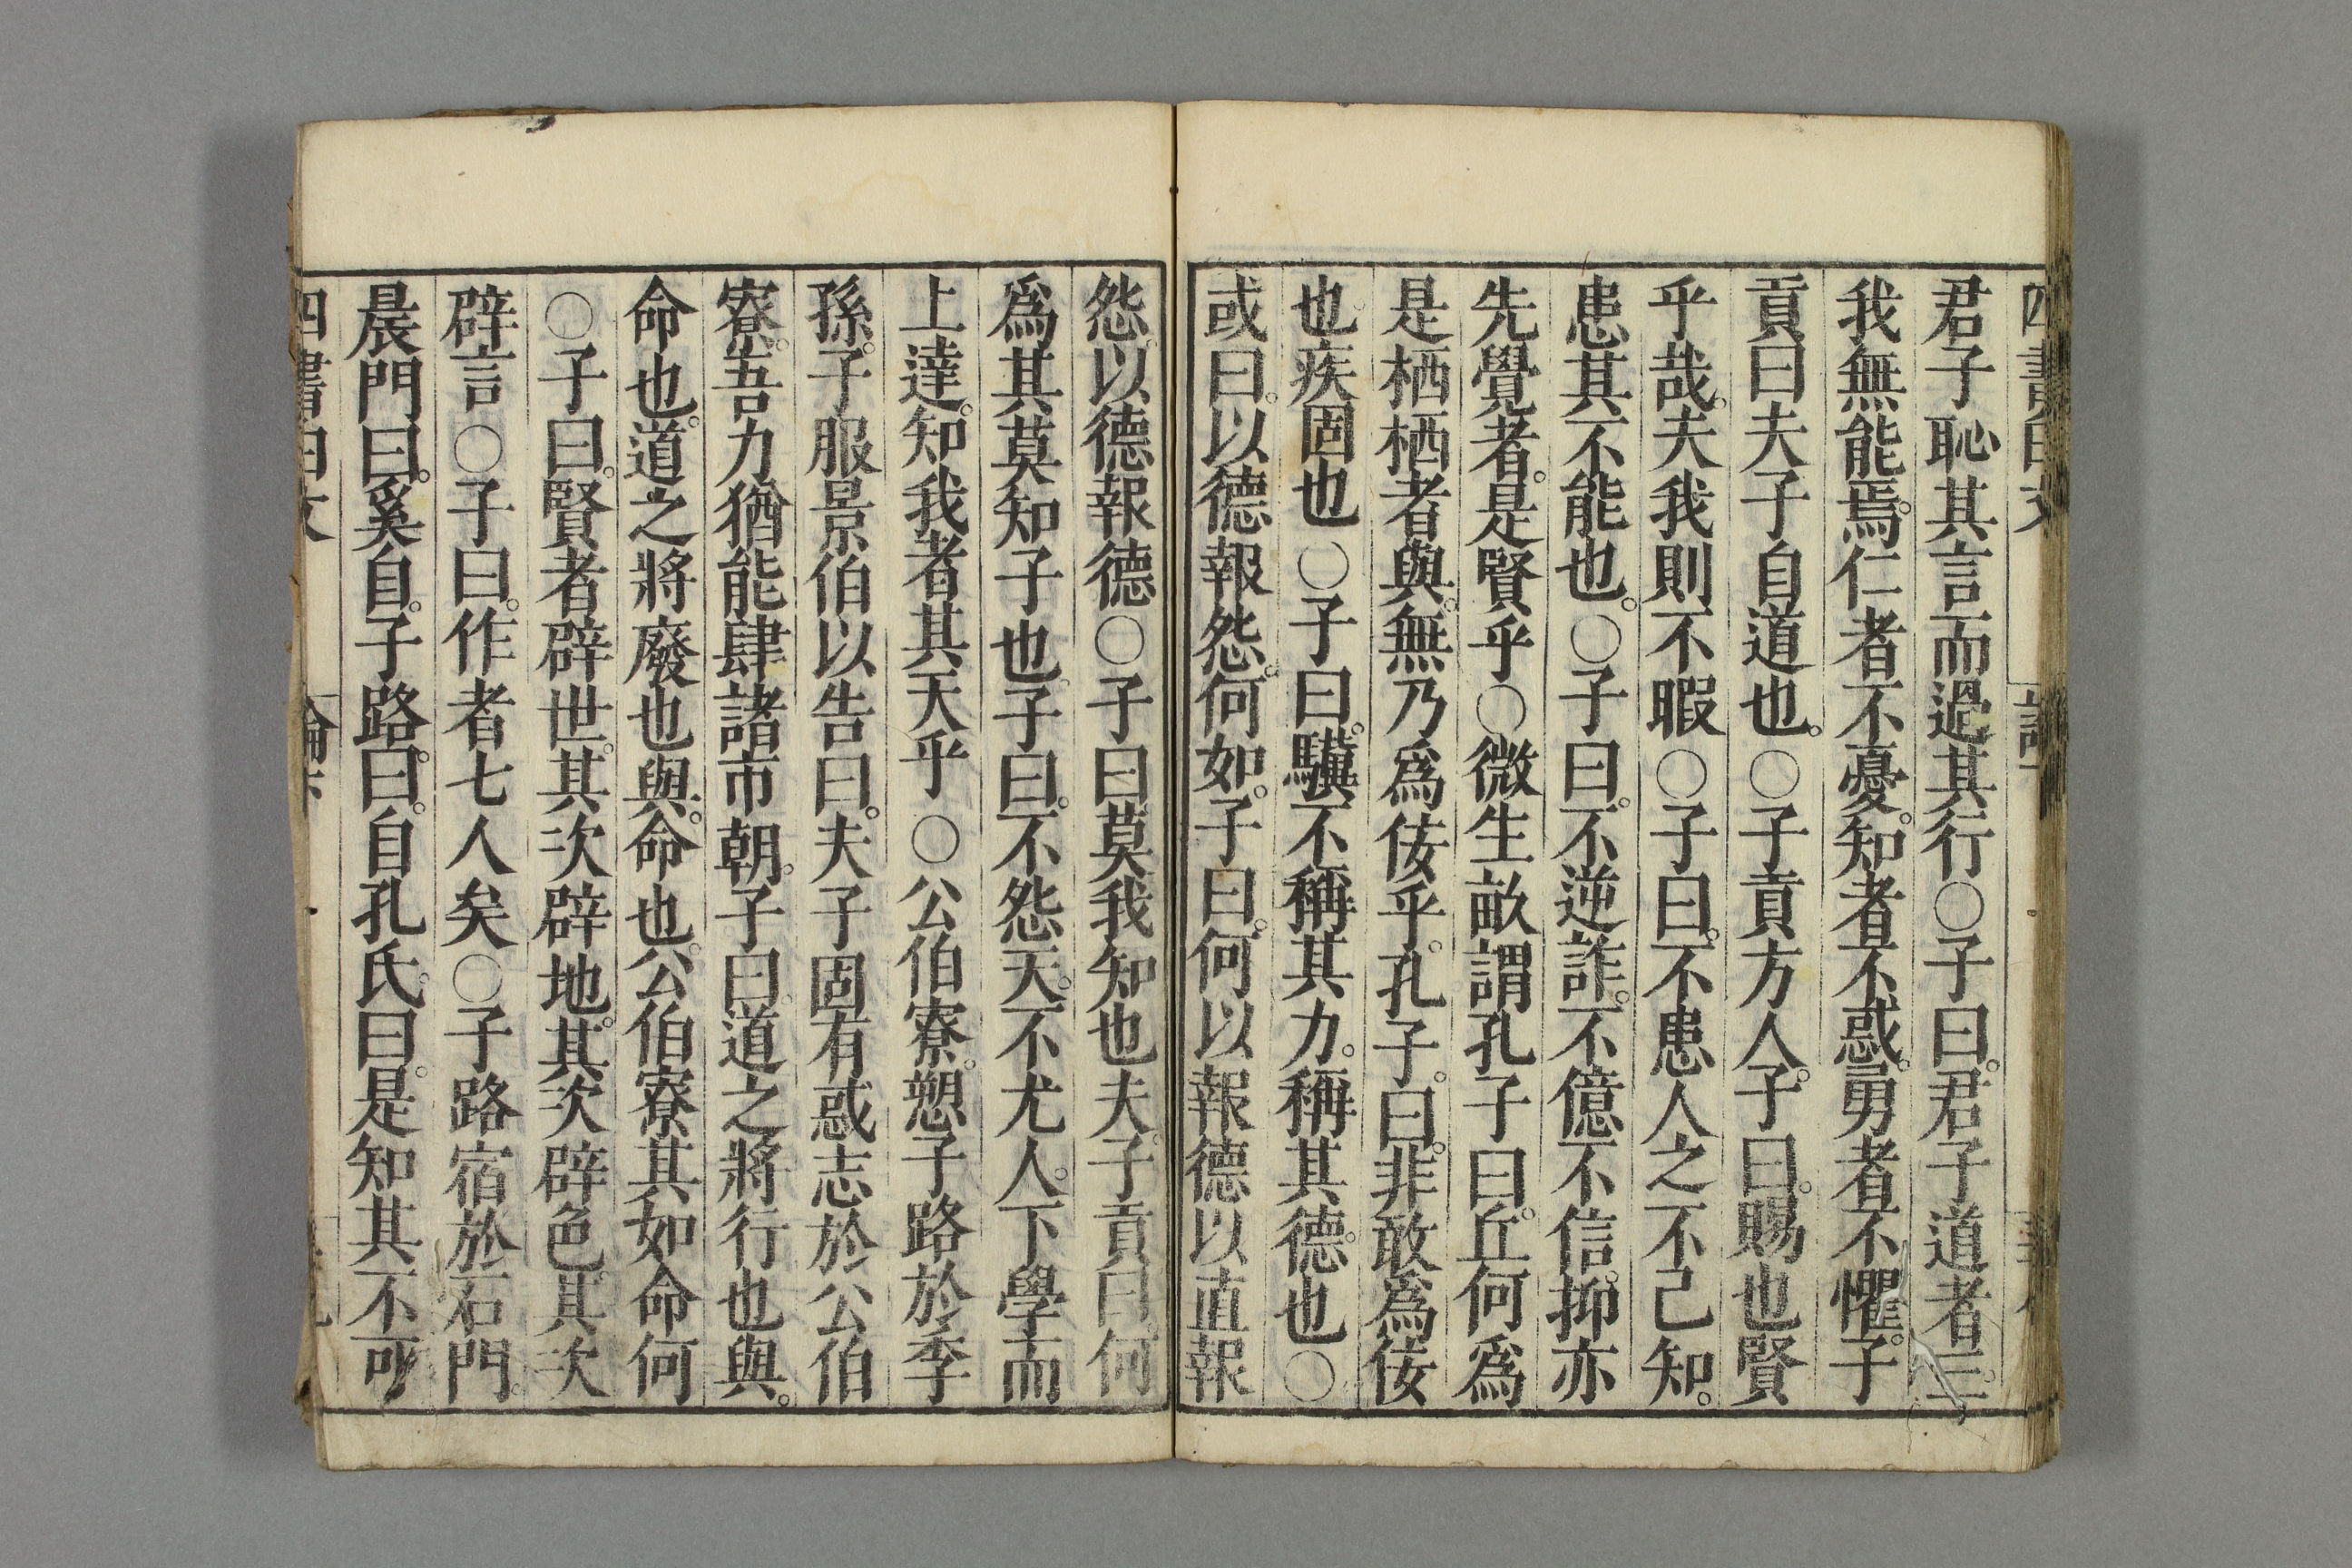 君子恥其言而過其行○子曰。君子道者三。
我無能焉。仁者不憂。知者不惑。勇者不懼。子
貢曰夫子自道也。○子貢方人。子曰。賜也賢
乎哉。夫我則不暇○子曰。不患人之不己知。
患其不能也。○子曰。不逆詐。不億不信。抑亦
先覺者。是賢乎○微生畝謂孔子曰。丘何爲
是栖栖者與。無乃爲佞乎。孔子。曰。非敢爲佞
也。疾固也○子曰。驥不稱其力。稱其德。也○
或曰。以德報怨。何如。子曰。何以報德以直報
怨。以德報德○子曰莫我知也夫。子貢曰。何
爲其莫知子也。子曰。不怨天。不尤人。下學而
上達。知我者其天乎○公伯寮。愬子路於季
孫。子服景伯以告曰。夫子固有惑志於公伯
寮。吾力猶能肆諸市朝。子曰。道之將行也與。
命也。道之將廢也與。命也。公伯寮其如命何
○子曰。賢者辟世。其次辟地。其次辟色。其次
辟言○子曰。作者七人矣○子路宿於石門。
晨門曰。奚自。子路曰。自孔氏。曰。是知其不可
四書白文